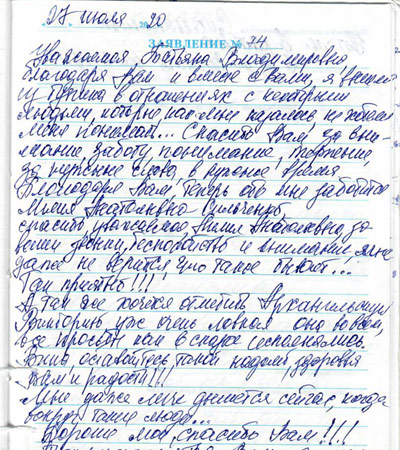 27 июля 20
ЗАЯВЛЕНИЕ № 74
Уважаемая Татьяна Владимировна
благодаря Вам и вместе с Вами, я вышла
из тупика в отношениях с некоторыми
людьми, которые как мне казалось, не хотели
меня понимать... Спасибо Вам, за вни-
мание, заботу, понимание, терпение,
за нужные слова, в нужное время.
Благодаря Вам, теперь обо мне заботится
Лилия Анатольевна
спасибо уважаемая Лилия Анатольевна, за
ваши звонки, беспокойство и внимание мне
даже не верится что такое бывает...
Так приятно!!!
А так же хочется отметить Архангельскую
Викторию уж очень ловкая она во всём,
все просьбы к ней в скором исполнялись.
Вика оставайтесь такой надолго, здоровья
Вам и радости!!!
Мне даже легче дышится сейчас, когда
вокруг такие люди...
Хорошие мои, спасибо Вам!!!!